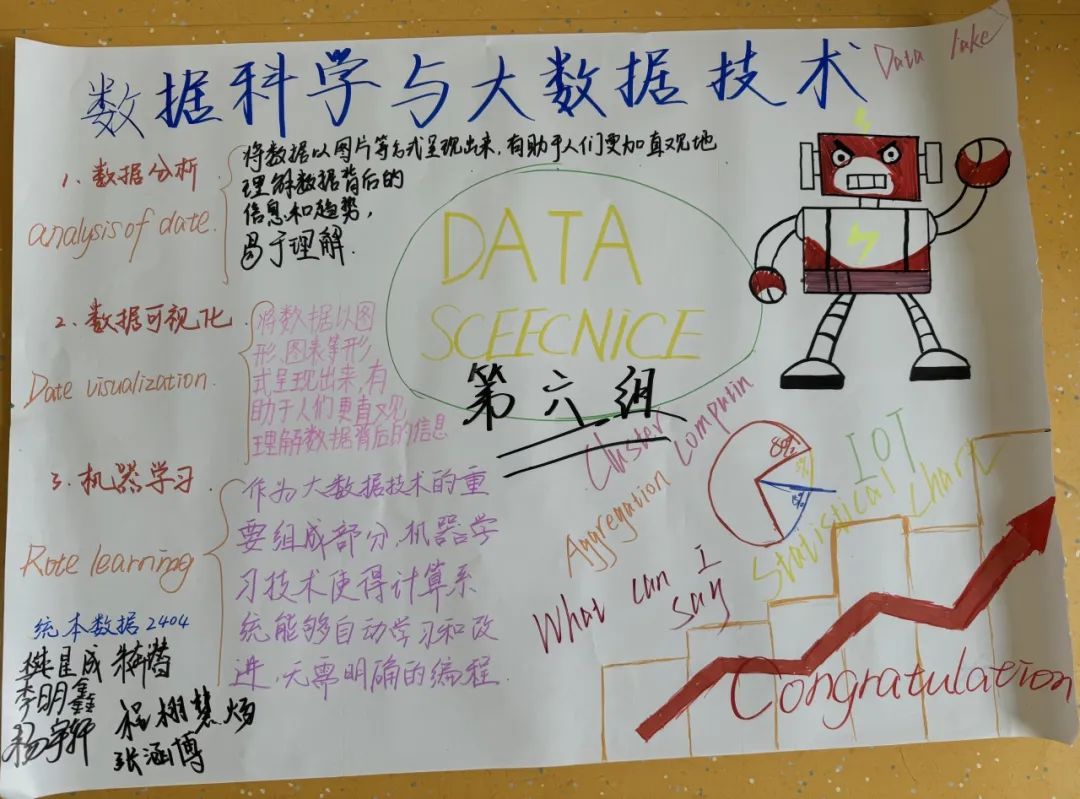 数据科学与大数据技术
Data lake
1、数据分析
analysis of date.
将数据以图片等方式呈现出来,有助于人们更加直观地
理解数据背后的
信息和趋势,
易于理解.
DATA
SCEECNICE
第六组
2、数据可视化
Date visualization.
将数据以图
形、图表等形
式呈现出来,有
助于人们更直观
理解数据背后的信息
3、机器学习
Rote learning
作为大数据技术的重
要组成部分,机器学
习技术使得计算系
统能够自动学习和改
进,无需明确的编程.
Cluster Computin
Aggregation
IOT
Statistical chart
What can I
say
Congratulation
统本数据2404
李明鑫
杨宇轩
张涵博